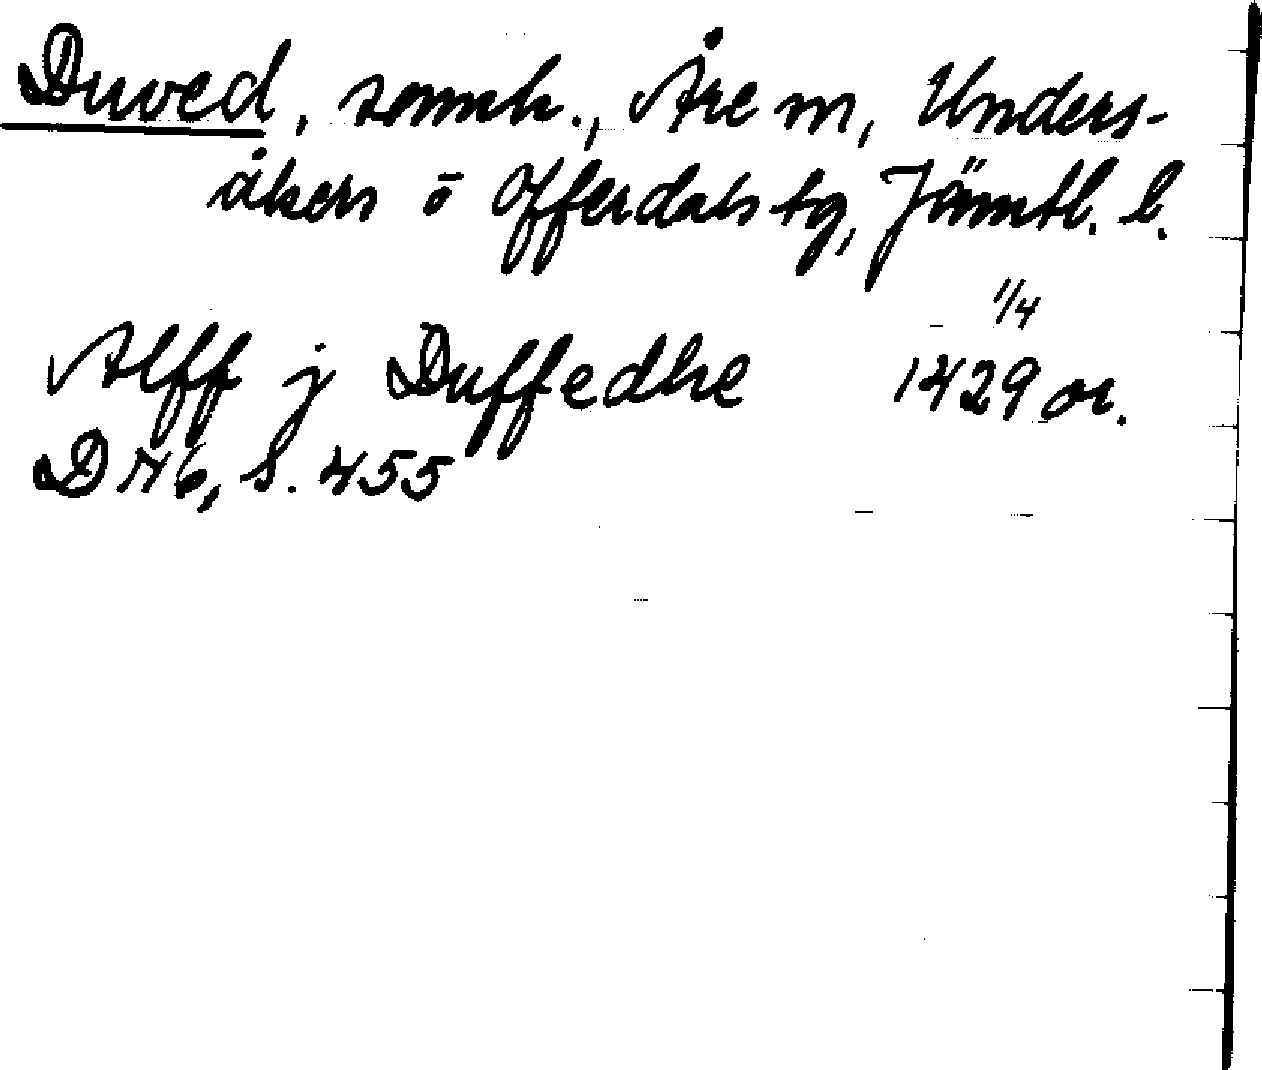 Duved, samh., Åre sn, Unders-
åkers o Offerdals tg, Jämtl. l.
1/4
Alff j Duffedhe 1429 or.
DN 6, s. 455